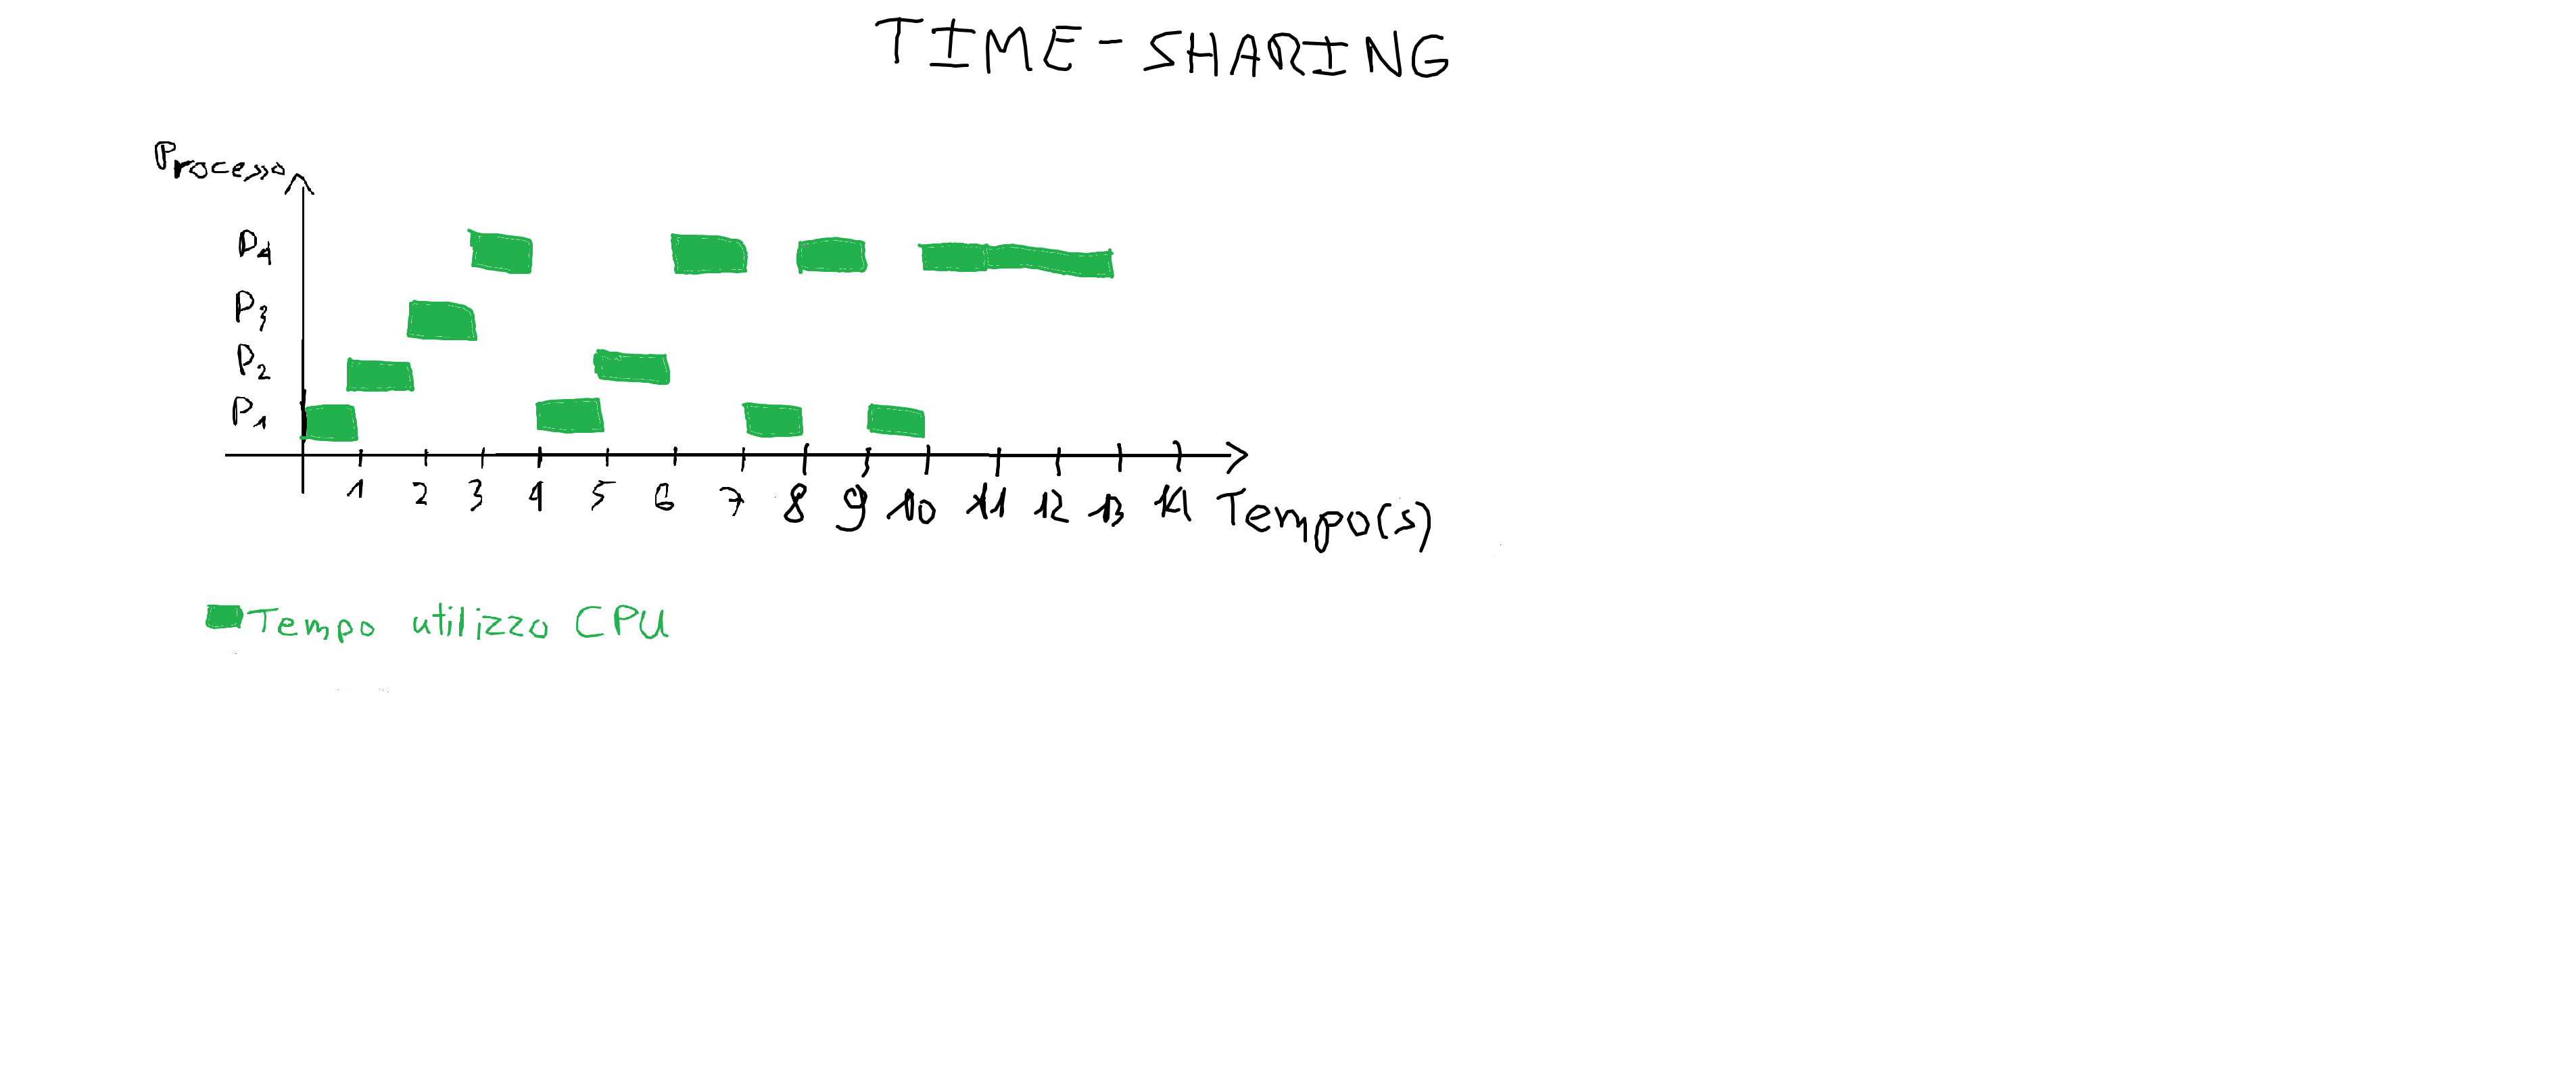 TIME-SHARING
Processo
P4
P3
P2
P1
1 2 3 4 5 6 7 8 9 10 11 12 13 14 Tempo(s)
Tempo utilizzo CPU